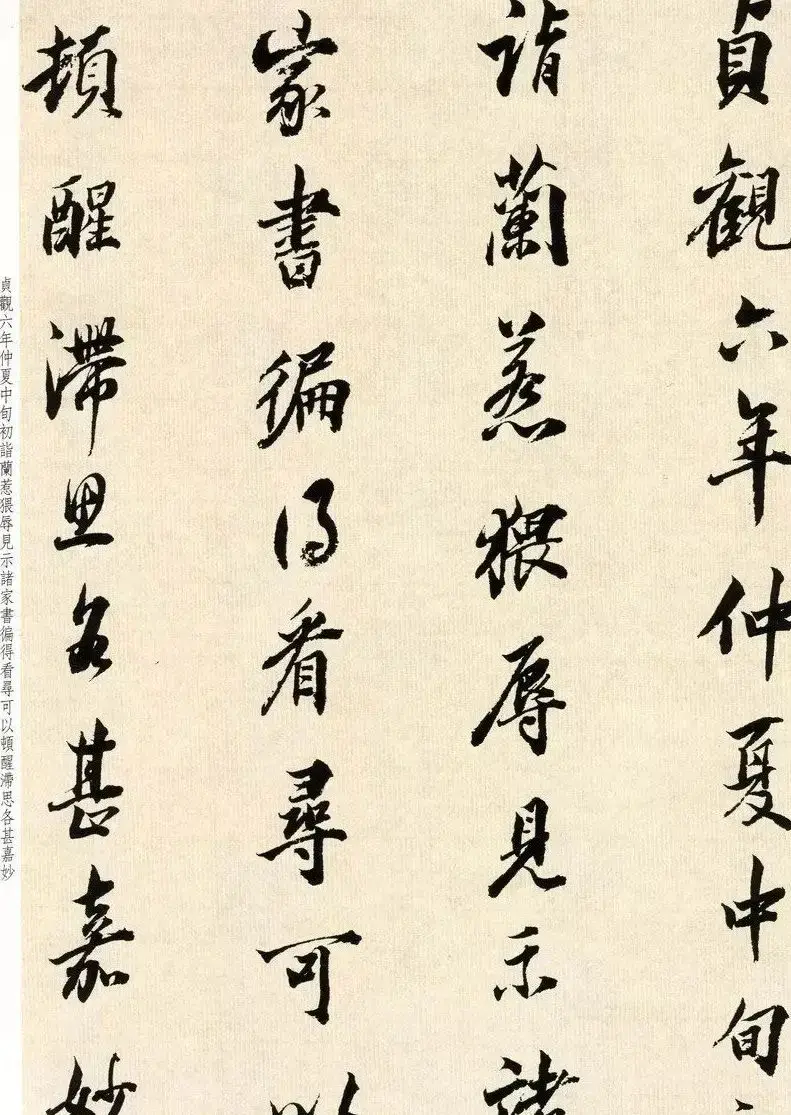 貞觀六年仲夏中旬初
詣蘭惹猥辱見示諸
家書徧得看尋可以
頓醒滯思各甚嘉妙
貞觀六年仲夏中旬初詣蘭惹猥辱見示諸家書徧得看尋可以頓醒滯思各甚嘉妙